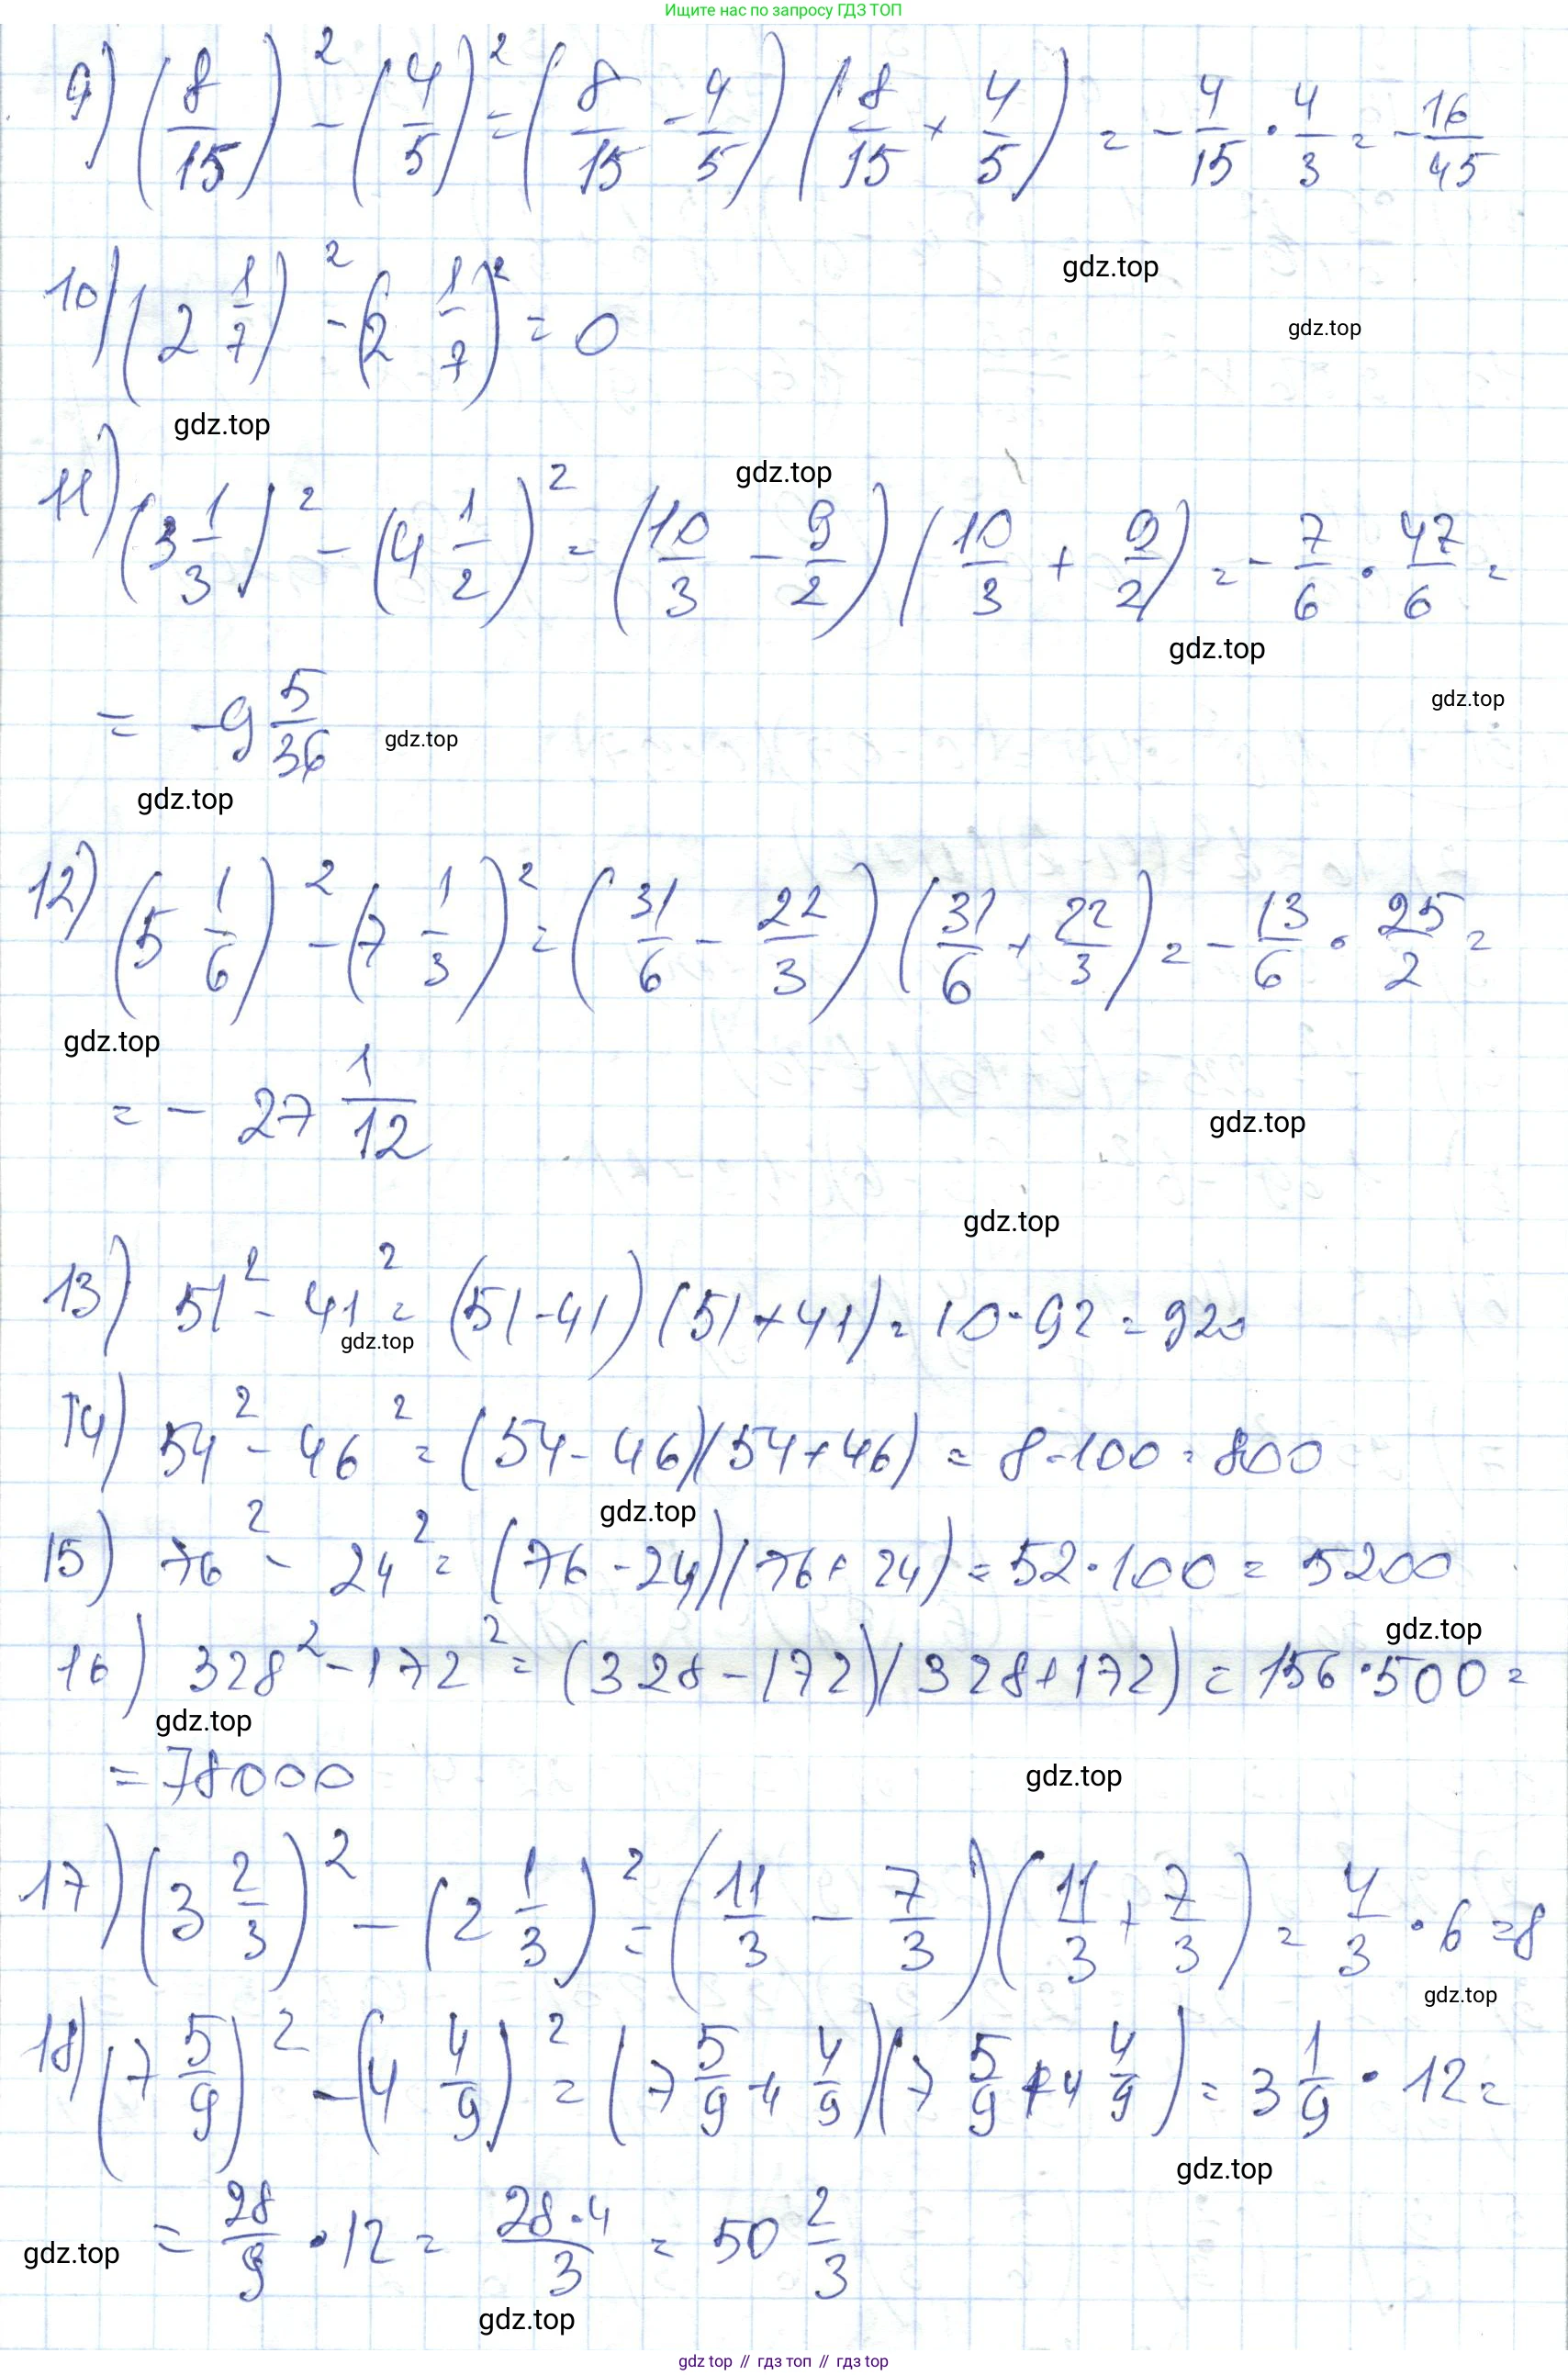 Ищите нас по запросу ГДЗ ТОП
9) (8/15)² - (4/5)² = (8/15 - 4/5) (8/15 + 4/5) = - 4/15 · 4/3 = - 16/45
gdz.top
10) (2 1/7)² - (2 1/7)² = 0
gdz.top
gdz.top
gdz.top
11) (3 1/3)² - (4 1/2)² = (10/3 - 9/2) (10/3 + 9/2) = - 7/6 · 47/6 =
gdz.top
gdz.top
= -9 5/36
gdz.top
gdz.top
12) (5 1/6)² - (7 1/3)² = (31/6 - 22/3) (31/6 + 22/3) = - 13/6 · 25/2 =
gdz.top
= - 27 1/12
gdz.top
gdz.top
13) 51² - 41² = (51-41) (51+41) = 10·92 = 920
gdz.top
14) 54² - 46² = (54-46)(54+46) = 8·100 = 800
gdz.top
15) 76² - 24² = (76-24)(76+24) = 52·100 = 5200
gdz.top
16) 328² - 172² = (328-172)(328+172) = 156·500 =
gdz.top
= 78000
gdz.top
17) (3 2/3)² - (2 1/3)² = (11/3 - 7/3)(11/3 + 7/3) = 4/3 · 6 = 8
gdz.top
18) (7 5/9)² - (4 4/9)² = (7 5/9 - 4 4/9)(7 5/9 + 4 4/9) = 3 1/9 · 12 =
gdz.top
= 28/9 · 12 = 28·4/3 = 50 2/3
gdz.top
gdz.top
gdz top // гдз топ // гдз top